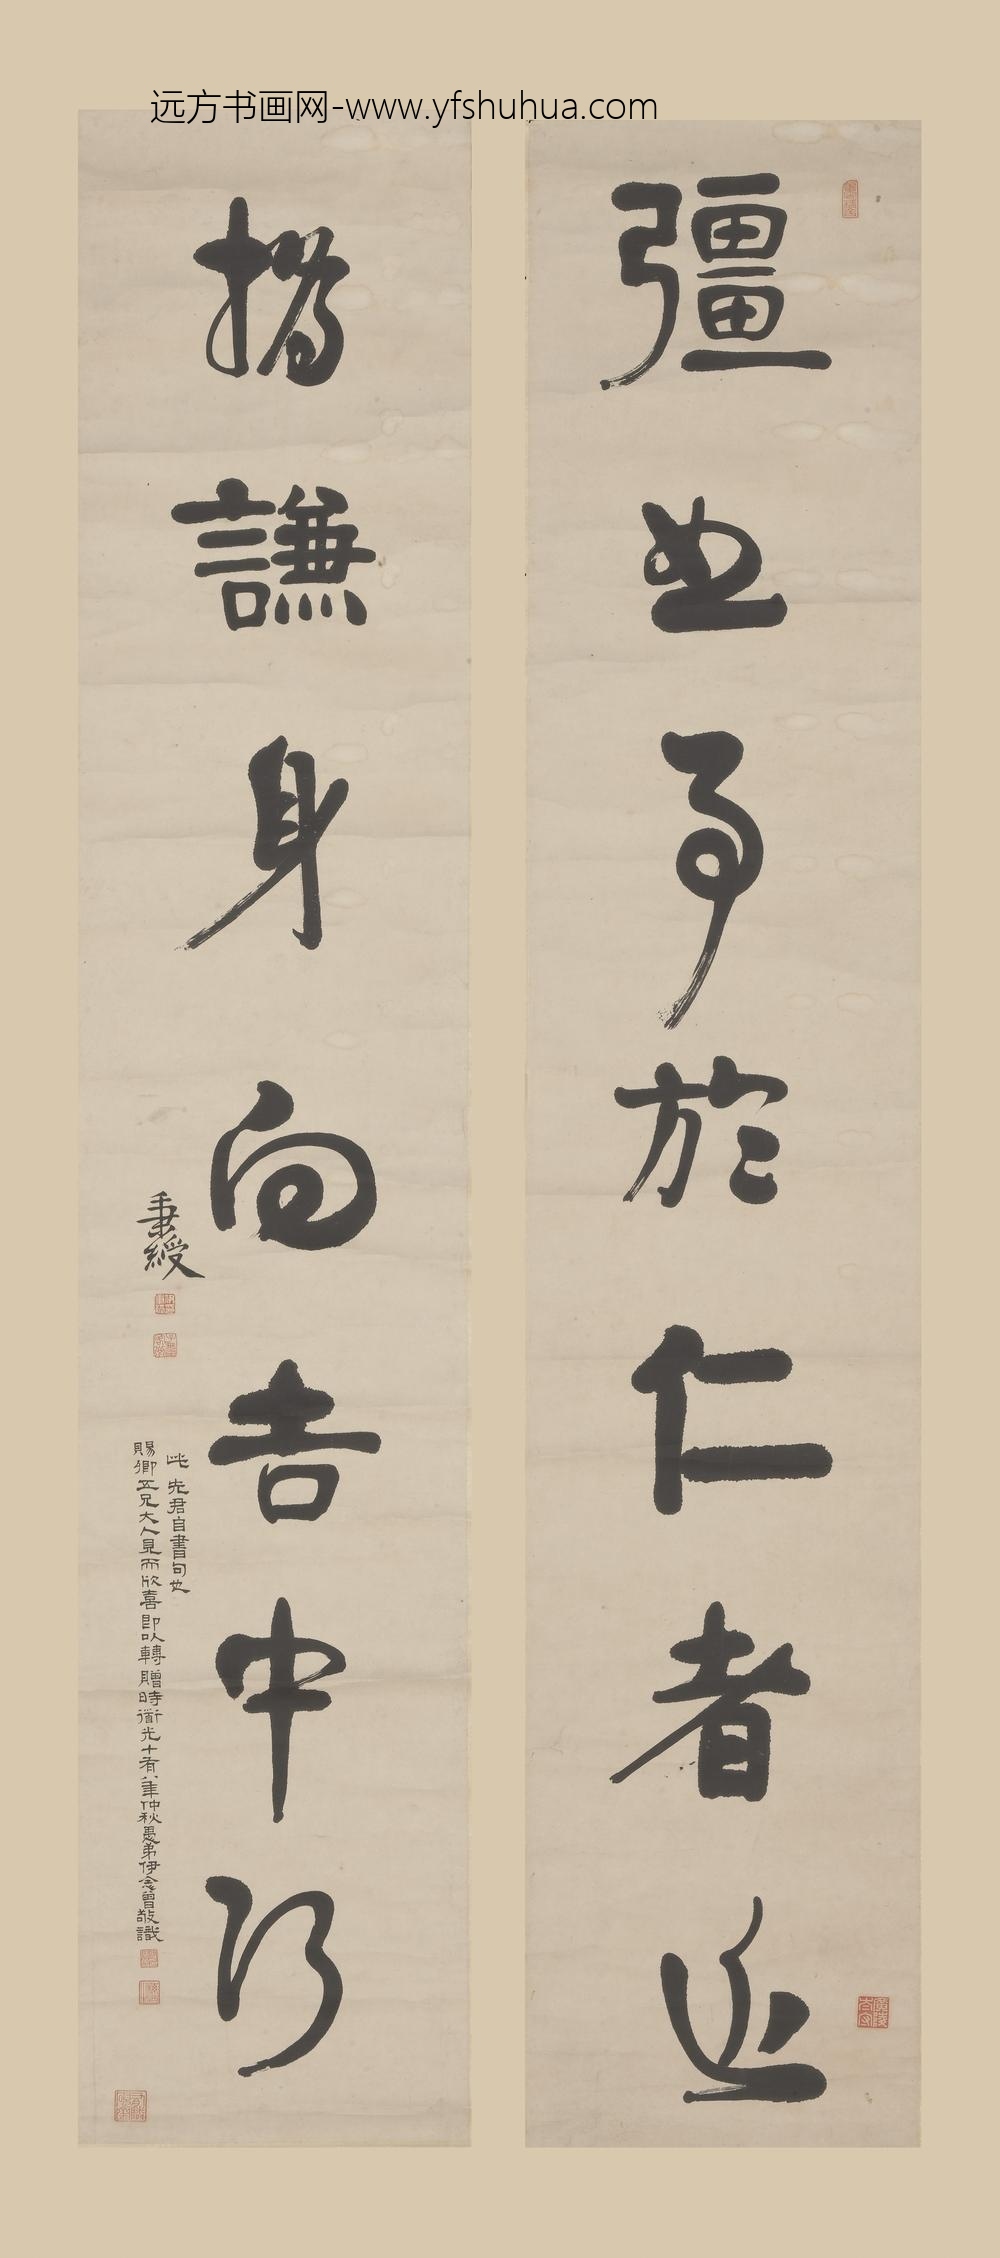 远方书画网-www.yfshuhua.com
彊恕事於仁者近
撝謙身向吉中行
秉綬
此先君自書句也
賜卿五兄大人見而欣喜即以轉贈時道光十有八年仲秋愚弟伊念曾敬識